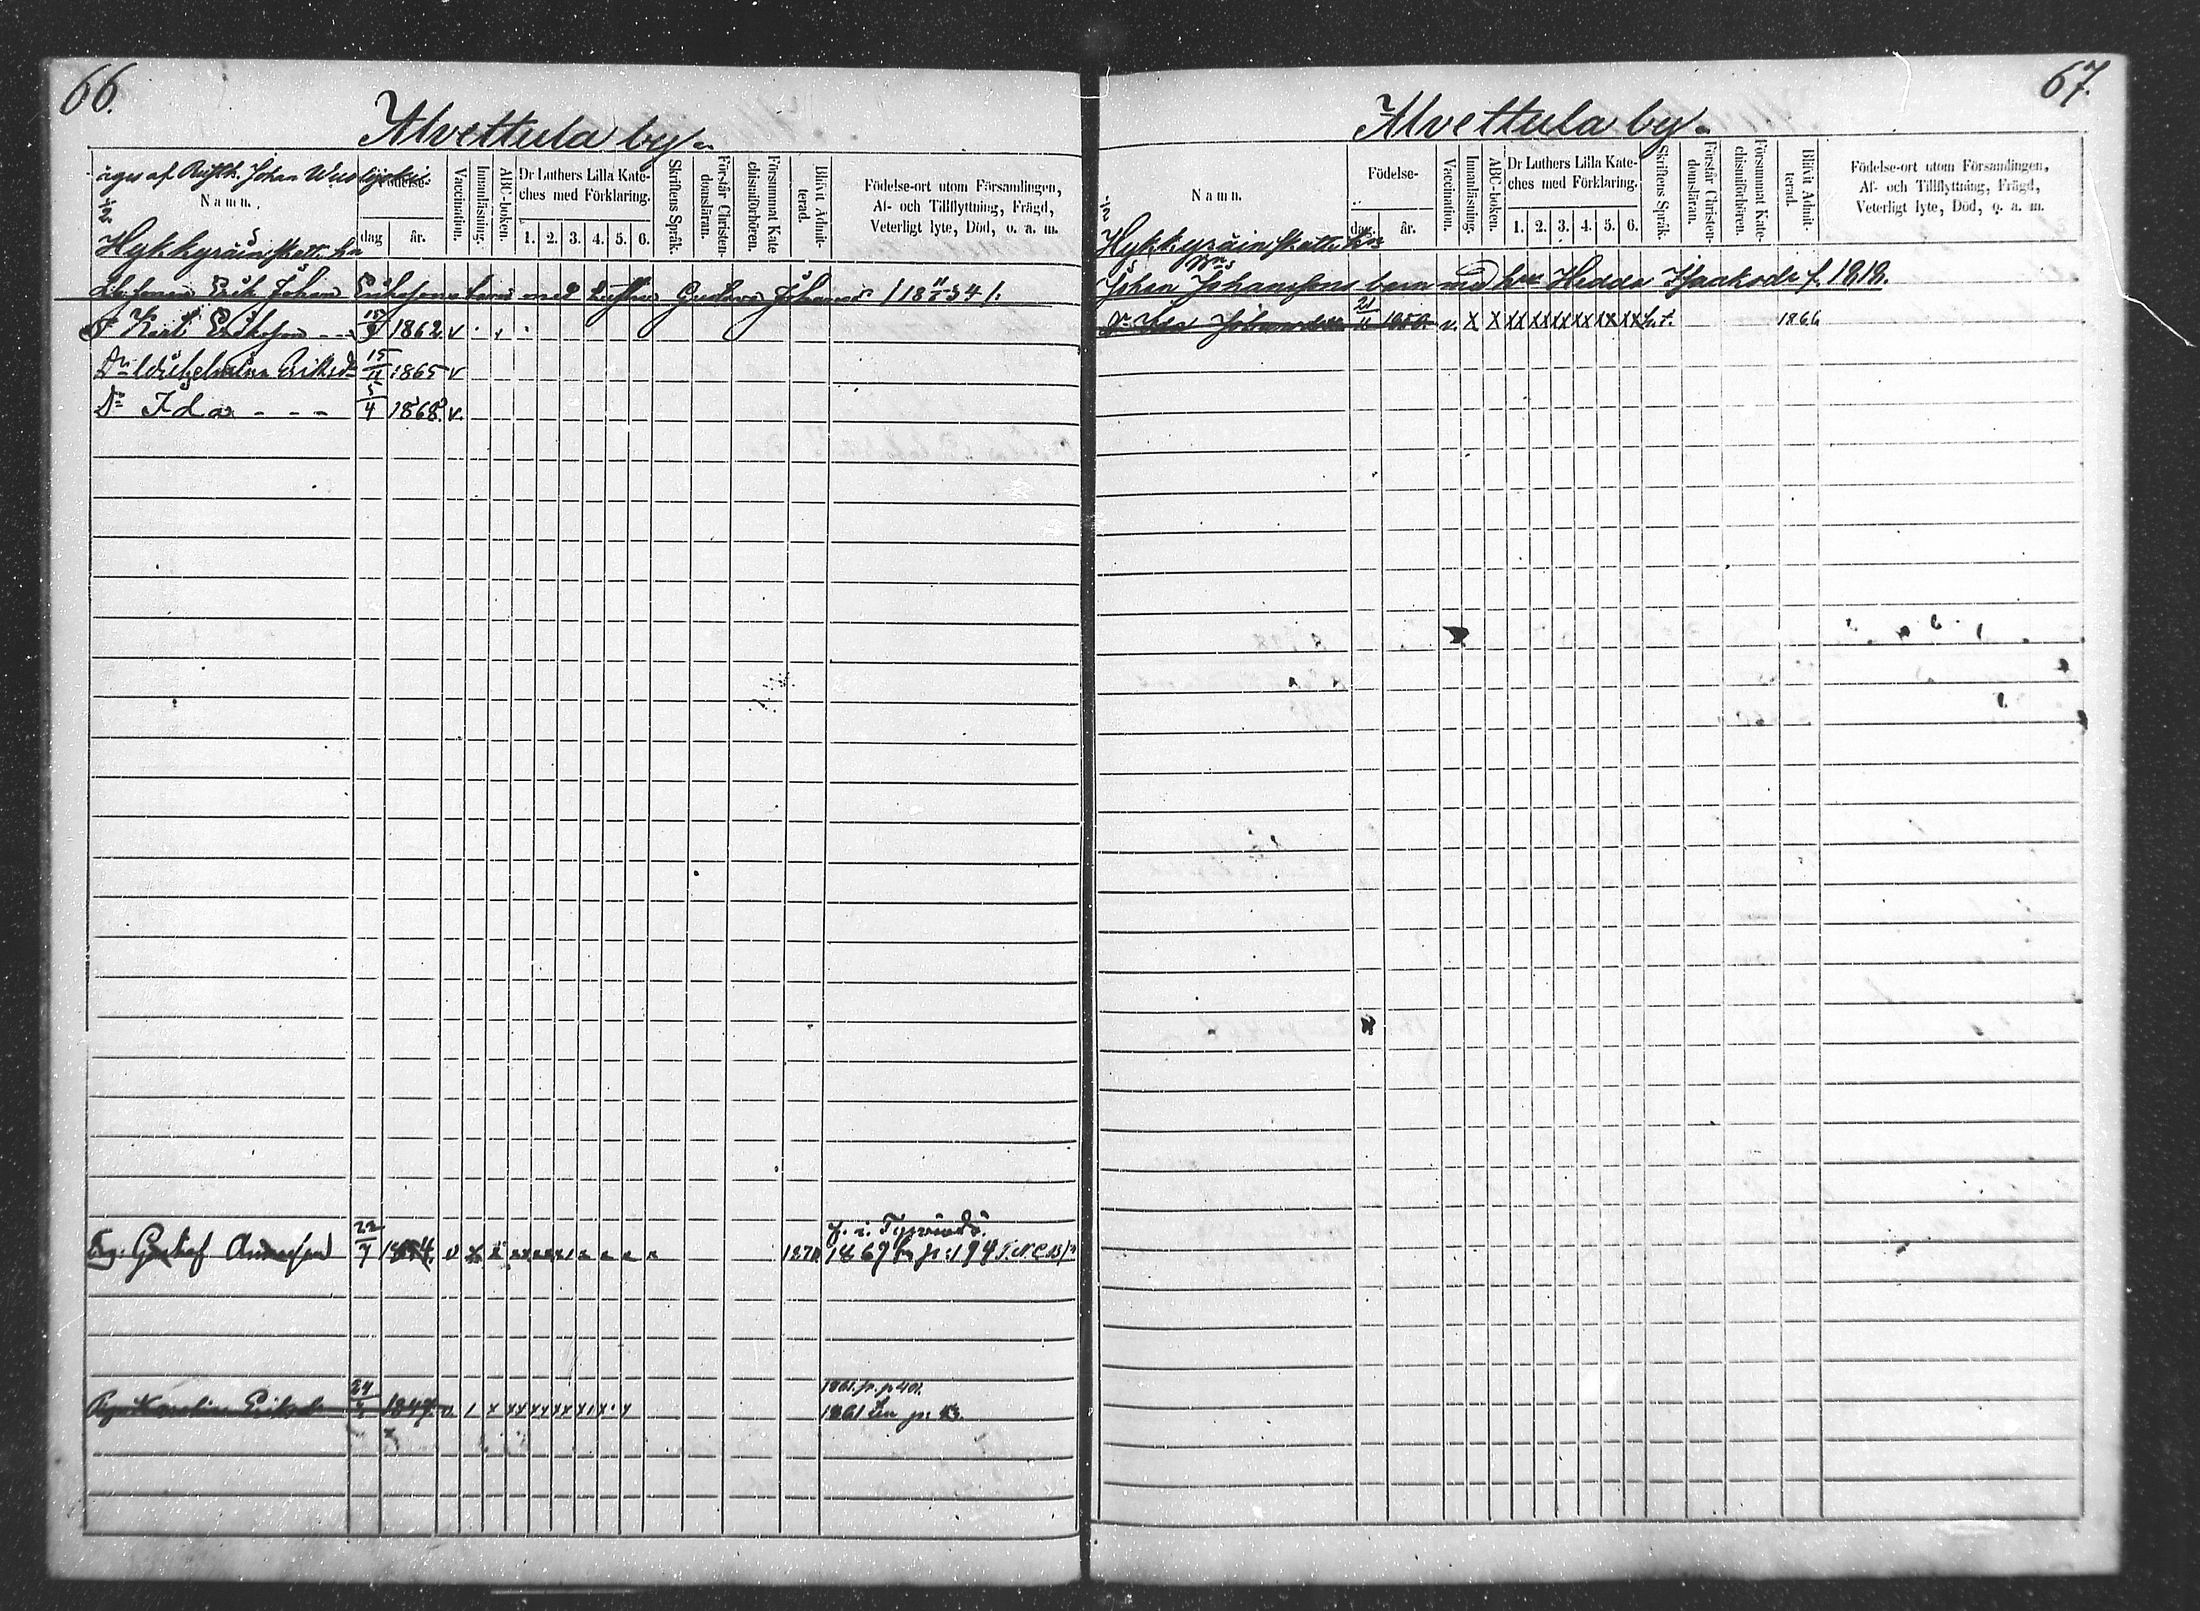 66.
Alvettula by.
äges af Rusth. Johan
Namn.
Födelse-
dag
år.
Vaccination.
Innanläsning.
ABC-boken.
Dr Luthers Lilla Kate-
ches med Förklaring.
1. 2. 3. 4. 5. 6.
Skriftens Språk.
Förstår Christen-
domsläran.
Försummat Kate
chismiförhören.
Blivit Admit-
terad.
Födelse-ort utom Församlingen,
Af- och Tillflyttning, Frägd,
Veterligt lyte, Död, o. a. m.
1/2
Hykkyräin Skatte hn
Erik Johan Erikssons barn med hustru Gustava / 18 34 /.
Karl Eriksson - - 15/9 1862. v
Dr Wilhelmina Eriksdr 15/11 1865 v
Dr Ida - - - 5/4 1868. v.
Drg. Gustaf Andersson 22/7 v x x 187
f. i Tyrvändö.
1869 fr p. 194
Pig. Karolina Eriksdr 1847. x x x x x x x
1861 fr. p 401.
1861 p.
67.
Alvettula by.
Namn.
Födelse-
dag.
år.
Vaccination.
Innanläsning.
ABC-boken.
Dr Luthers Lilla Kate-
ches med Förklaring.
1. 2. 3. 4. 5. 6.
Skriftens Språk.
Förstår Christen-
domsläran.
Försummat Kate-
chismiförhören.
Blivit Admit-
terad.
Födelse-ort utom Församlingen,
Af- och Tillflyttning, Frägd,
Veterligt lyte, Död, o. a. m.
1/2
Hykkyräin Skatte hn
Johan Johanssons barn med Hedda Isaksdr f. 1818.
Dr Ida Johansdr 21/11 1850. v. x x xx xx xx xx xx xx 1866